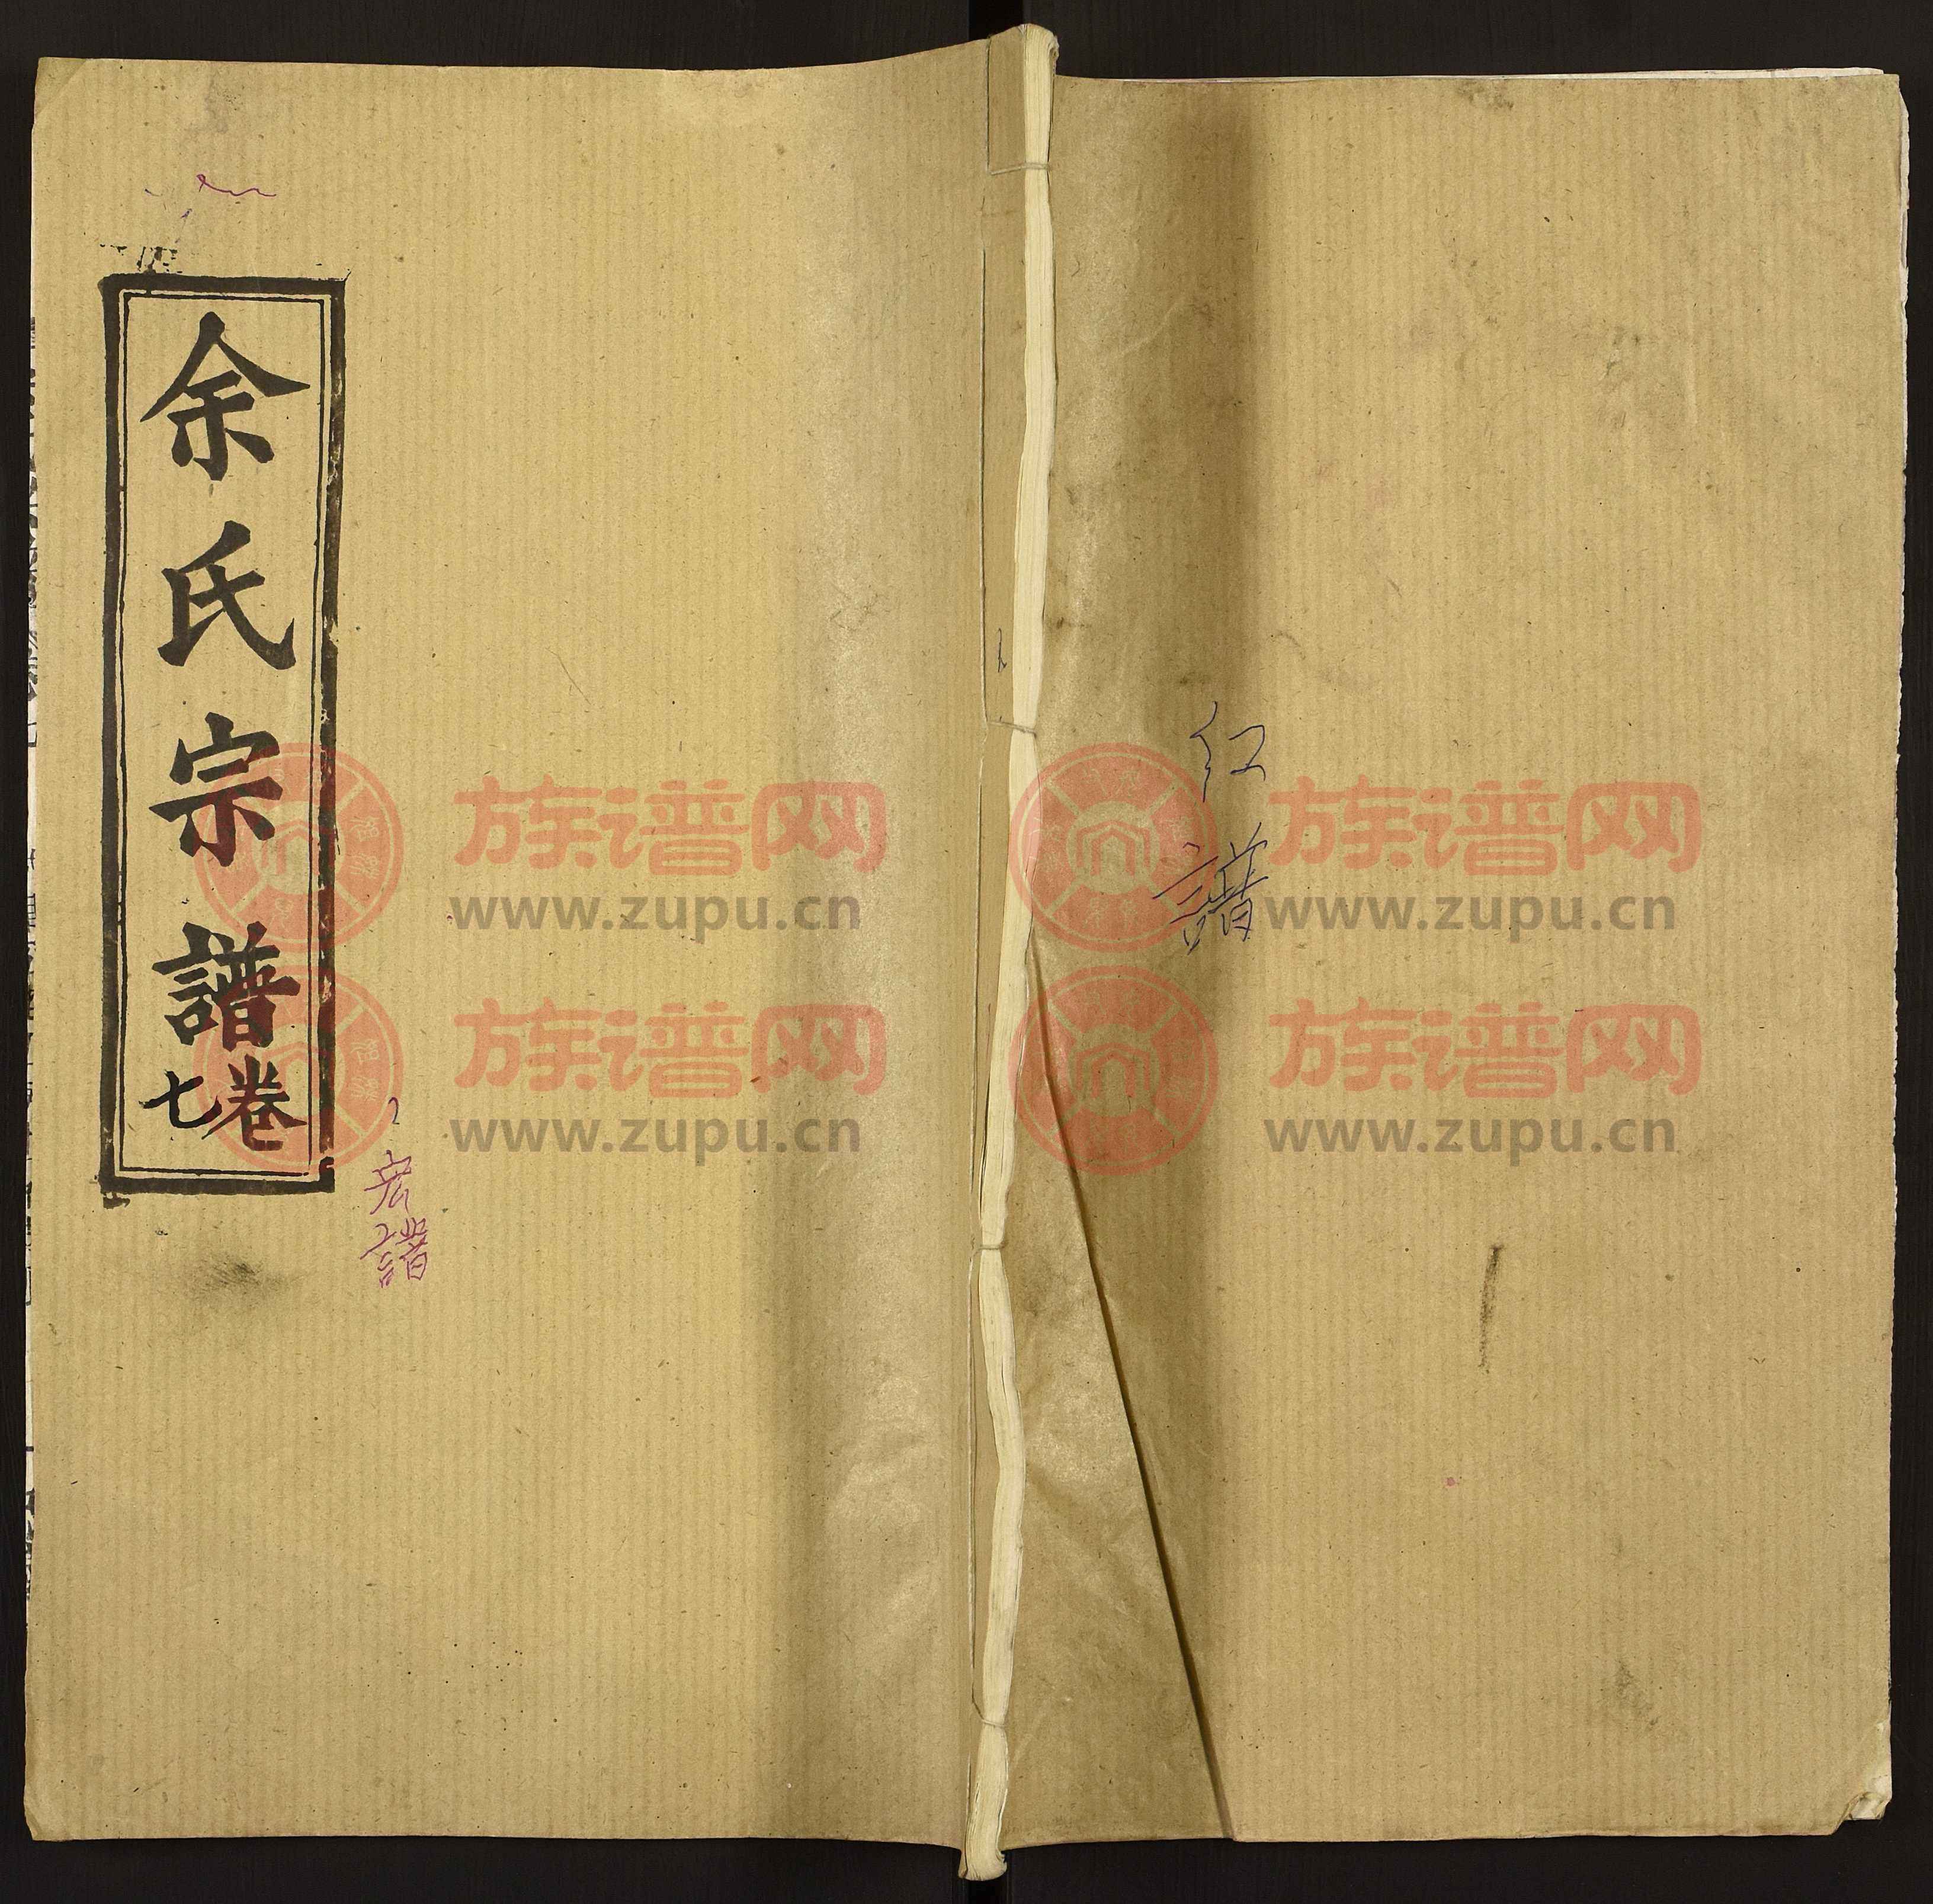 余氏宗譜
卷七
宏譜
红譜
族谱网
www.zupu.cn
族谱网
www.zupu.cn
族谱网
www.zupu.cn
族谱网
www.zupu.cn